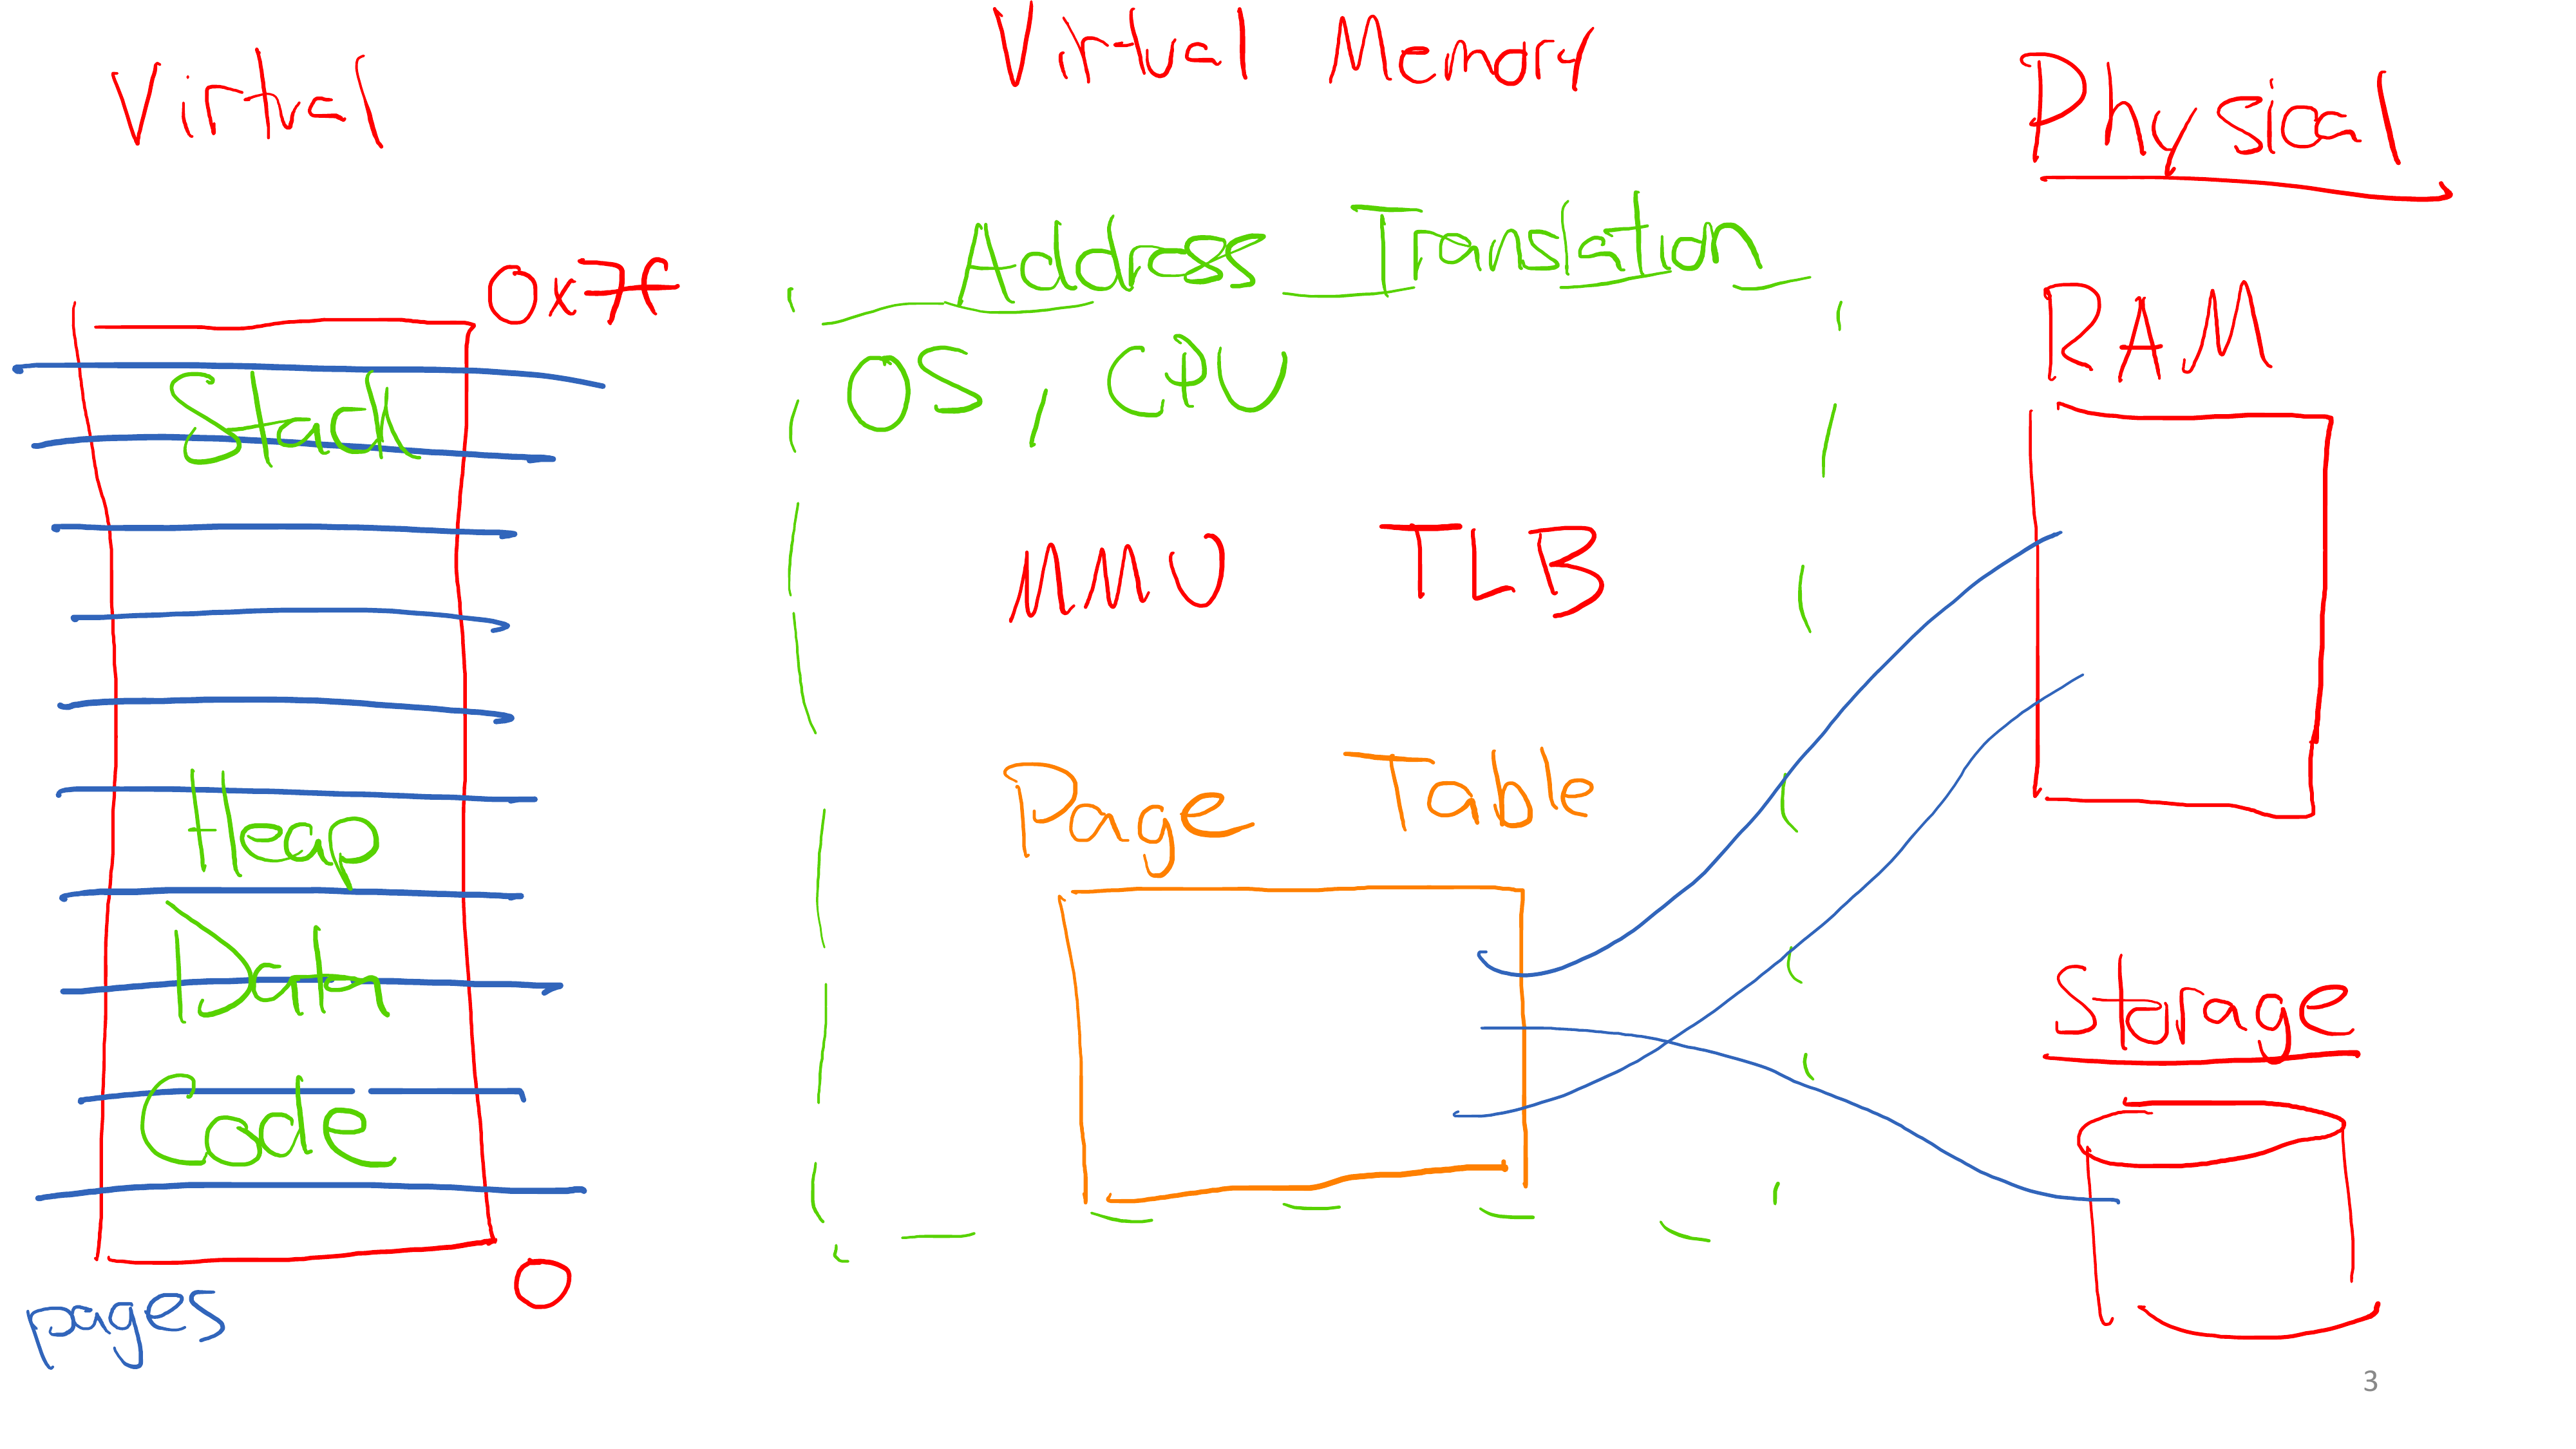 Virtual Memory
Virtual
Physical
0x7f
Stack
Heap
Data
Code
0
pages
Address Translation
OS, CPU
MMU TLB
Page Table
RAM
Storage
3